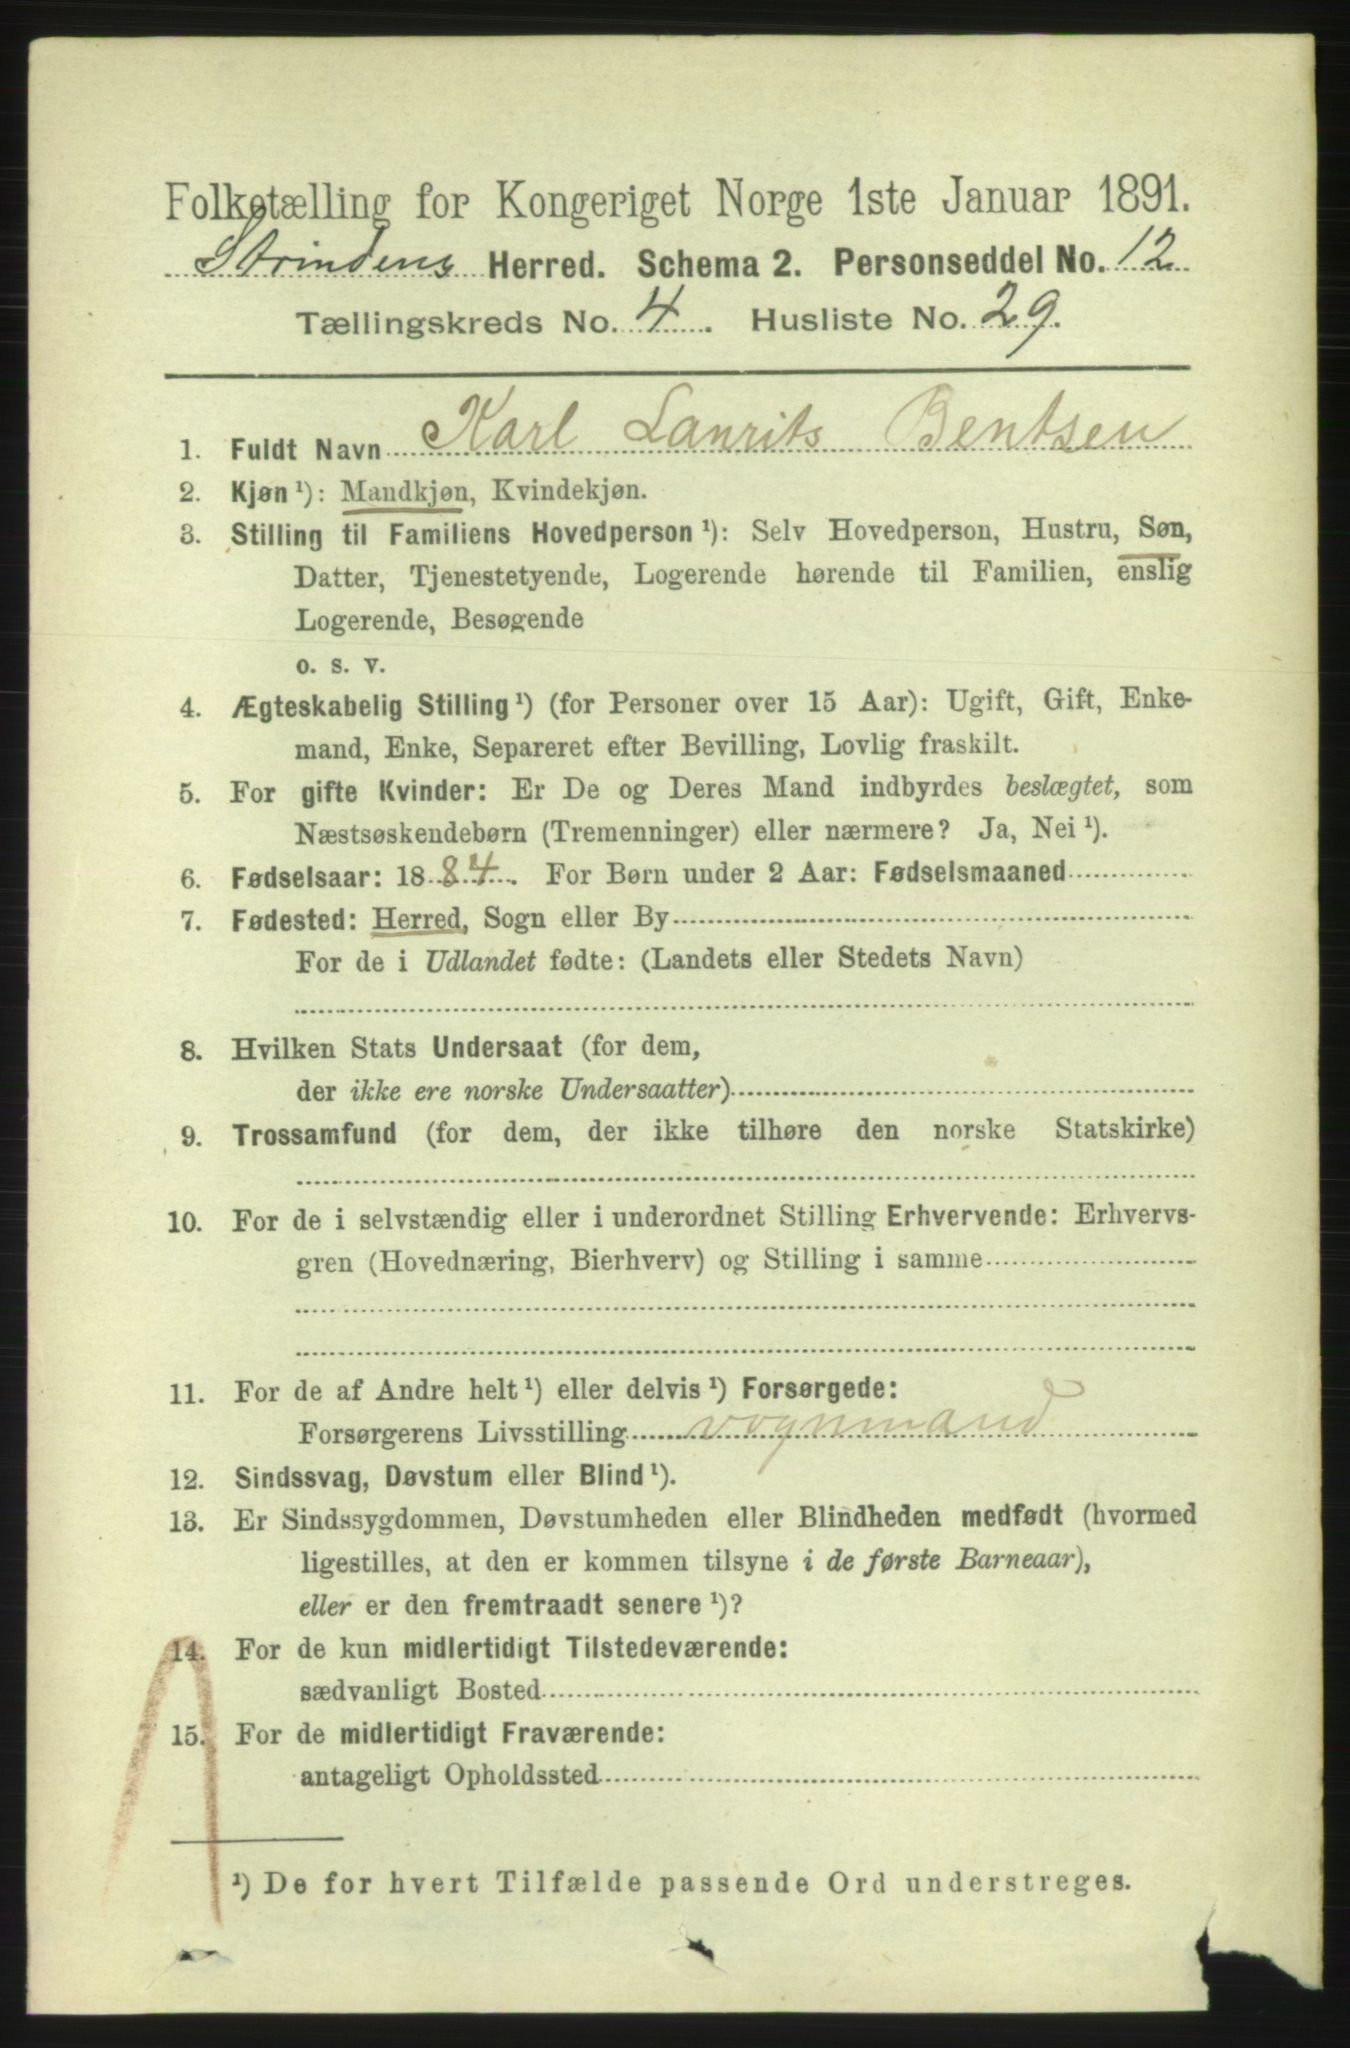 Folketælling for Kongeriget Norge 1ste Januar 1891.
Strindens Herred. Schema 2. Personseddel No. 12
Tællingskreds No. 4. Husliste No. 29.
1. Fuldt Navn Karl Laurits Bentsen
2. Kjøn ¹): Mandkjøn, Kvindekjøn.
3. Stilling til Familiens Hovedperson ¹): Selv Hovedperson, Hustru, Søn,
Datter, Tjenestetyende, Logerende hørende til Familien, enslig
Logerende, Besøgende
o. s. v.
4. Ægteskabelig Stilling ¹) (for Personer over 15 Aar): Ugift, Gift, Enke-
mand, Enke, Separeret efter Bevilling, Lovlig fraskilt.
5. For gifte Kvinder: Er De og Deres Mand indbyrdes beslægtet, som
Næstsøskendebørn (Tremenninger) eller nærmere? Ja, Nei ¹).
6. Fødselsaar: 1884. For Børn under 2 Aar: Fødselsmaaned
7. Fødested: Herred, Sogn eller By
For de i Udlandet fødte: (Landets eller Stedets Navn)
8. Hvilken Stats Undersaat (for dem,
der ikke ere norske Undersaatter)
9. Trossamfund (for dem, der ikke tilhøre den norske Statskirke)
10. For de i selvstændig eller i underordnet Stilling Erhvervende: Erhvervs-
gren (Hovednæring, Bierhverv) og Stilling i samme
11. For de af Andre helt ¹) eller delvis ¹) Forsørgede:
Forsørgerens Livsstilling vognmand
12. Sindssvag, Døvstum eller Blind ¹).
13. Er Sindssygdommen, Døvstumheden eller Blindheden medfødt (hvormed
ligestilles, at den er kommen tilsyne i de første Barneaar),
eller er den fremtraadt senere ¹)?
14. For de kun midlertidigt Tilstedeværende:
sædvanligt Bosted
15. For de midlertidigt Fraværende:
antageligt Opholdssted
¹) De for hvert Tilfælde passende Ord understreges.